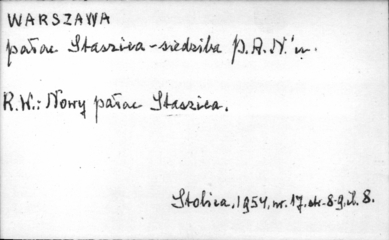 WARSZAWA
pałac Staszica - siedziba P.A.N.'u.
R.K.: Nowy pałac Staszica.
Stolica. 1954, nr. 17. str. 8-9, il. 8.